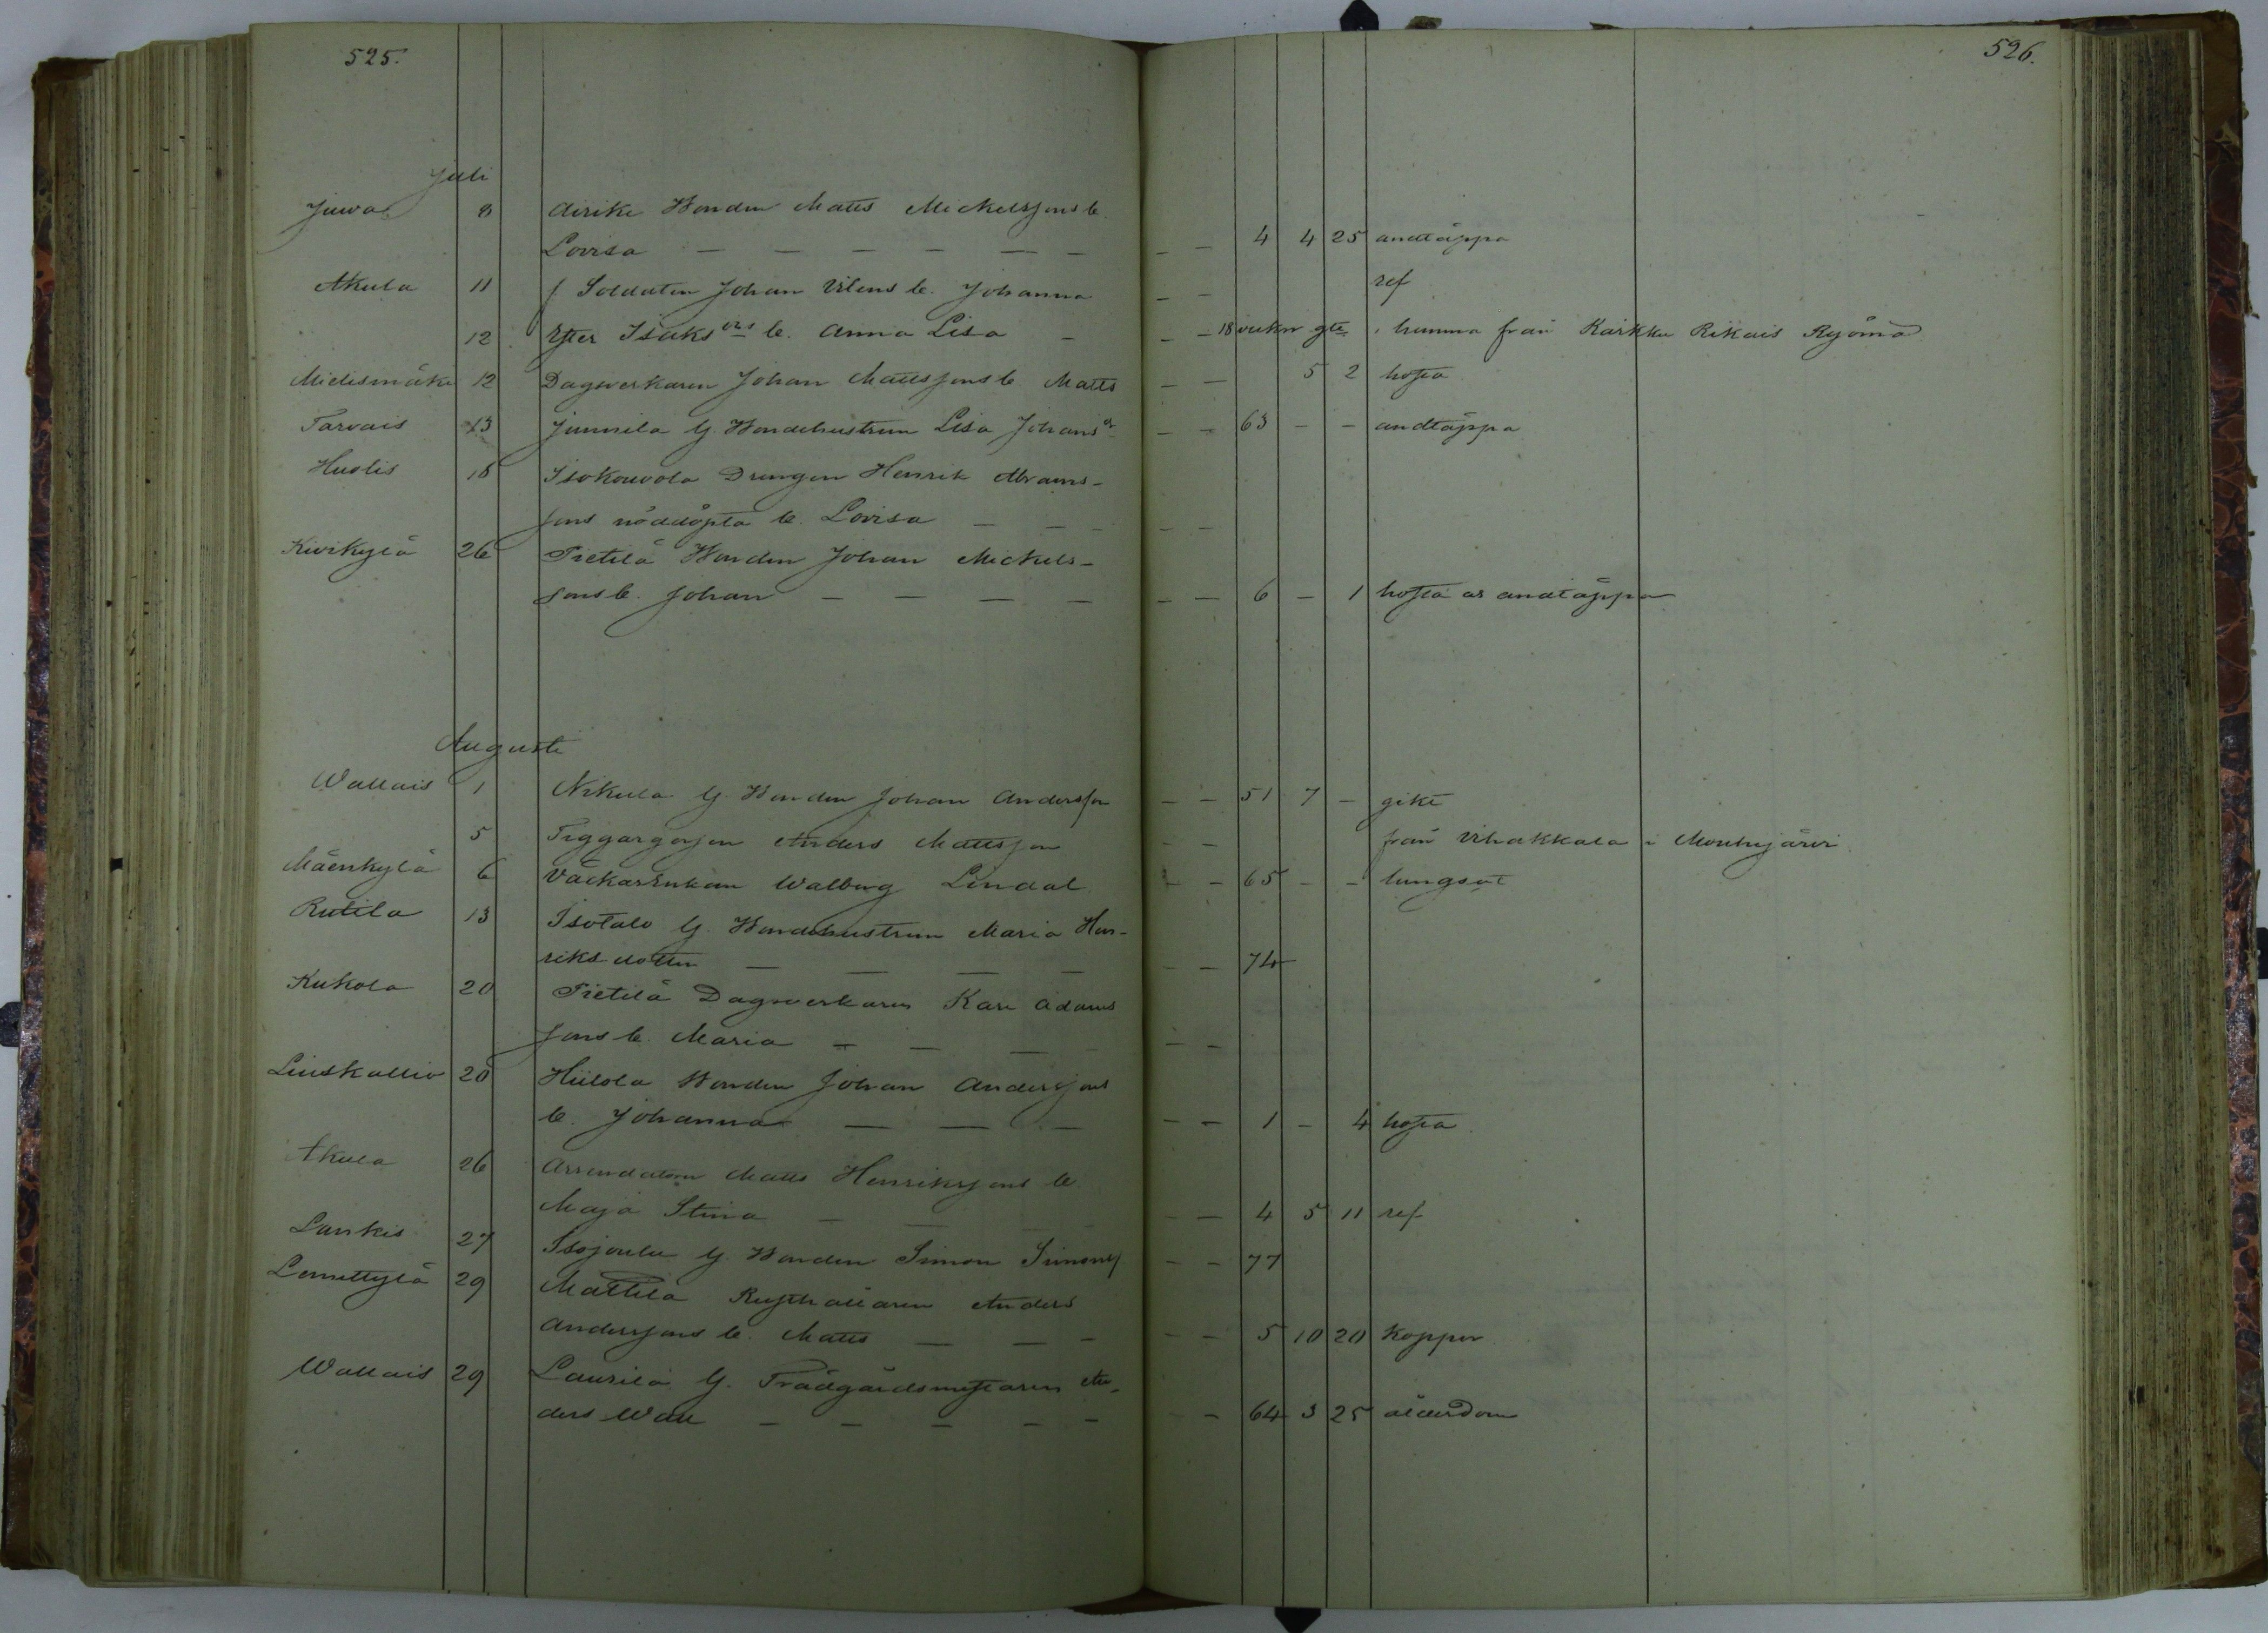 525.
526.
Juli
Juwa 8 Airike Bonden Matts Mickelssons b.
Lovisa — — — — — — — — 4 4 25 andtäppa
Akula 11 f. Soldaten Johan Vilens b. Johanna — — ref
12 Efter Isaks b. Anna Lisa — — — 18 veckor gl. hemma från Karkku Rikais Ryömä
Mielismäki 12 Dagsverkaren Johan Mattssons b Matts — — 5 2 hosta
Tarvais 13 Junnila G. Bondehustrun Lisa Johans dr — — 63 — — andtäppa
Huolis 18 Isokouvola Drengen Henrik Abrams-
sons nöddöpta b. Lovisa — — — — —
Kivikylä 26 Pietilä Bonden Johan Mickels-
sons b. Johan — — — — — — 6 — 1 hosta as andtäppa
Augusti
Wallais 1 Nikula G. Bonden Johan Andersson — — 51 7 — gikt
5 Tiggargossen Anders Mattsson — — från Vihakkala i Mouhijärvi
Mäenkylä 6 Väckarenkan Walborg Lindal — — 65 — — lungsot
Rutila 13 Isotalo G. Bondehustrun Maria Hen-
riks dotter — — — — — — 74
Kukola 20 Pietilä Dagsverkaren Karl Adams
sons b. Maria — — — — — —
Linskallio 20 Hiilola Bonden Johan Anderssons
b. Johanna — — — — — 1 — 4 hosta
Akula 26 Arrendatorn Matts Henrikssons b.
Maja Stina — — — — — — 4 5 11 ref
Lankis 27 Isojoulu G. Bonden Simon Simonss — — 77
Lemettylä 29 Mattila Rusthållaren Anders
Anderssons b. Matts — — — — — 5 10 20 koppor
Wallais 29 Laurila G. Trädgårdsmästaren An-
ders Wall — — — — — — 64 3 25 ålderdom